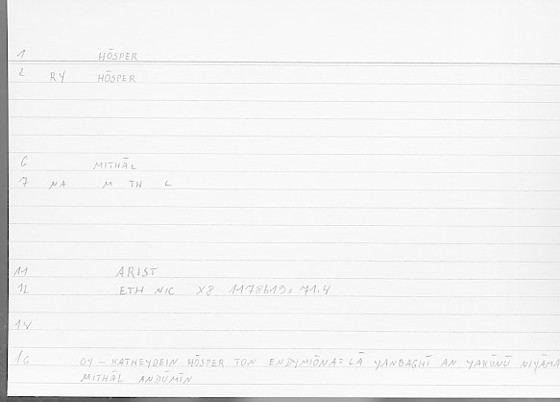 1 HŌSPER
2 RY HŌSPER
6 MITHĀL
7 NA M TH L
11 ARIST
12 ETH NIC X8 1178b19. 71.4
14
16 OY – KATHEYDEIN HŌSPER TON ENDYMIŌNA = LĀ YANBAGHĪ AN YAKŪNŪ NIYĀMA
MITHĀL ANDŪMĪN